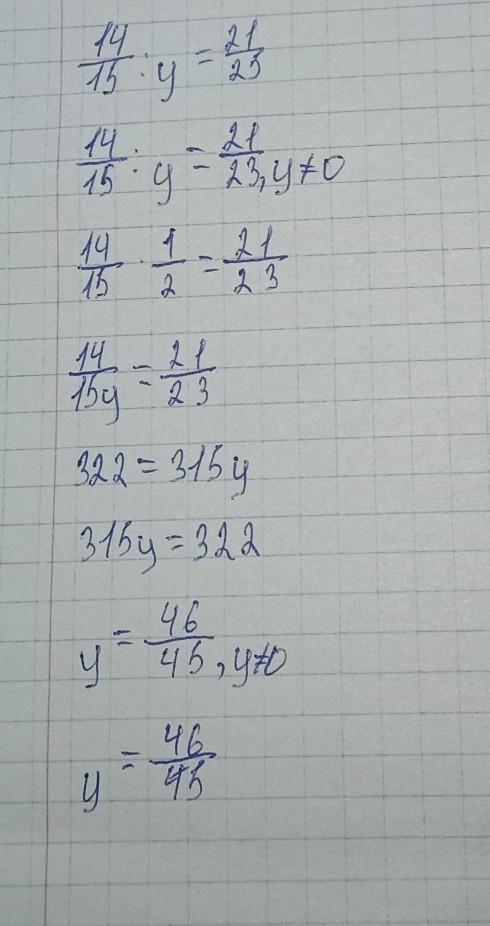 14/15 : y = 21/23
14/15 : y = 21/23, y≠0
14/15 · 1/2 = 21/23
14/15y = 21/23
322 = 315y
315y = 322
y = 46/45, y≠0
y = 46/45